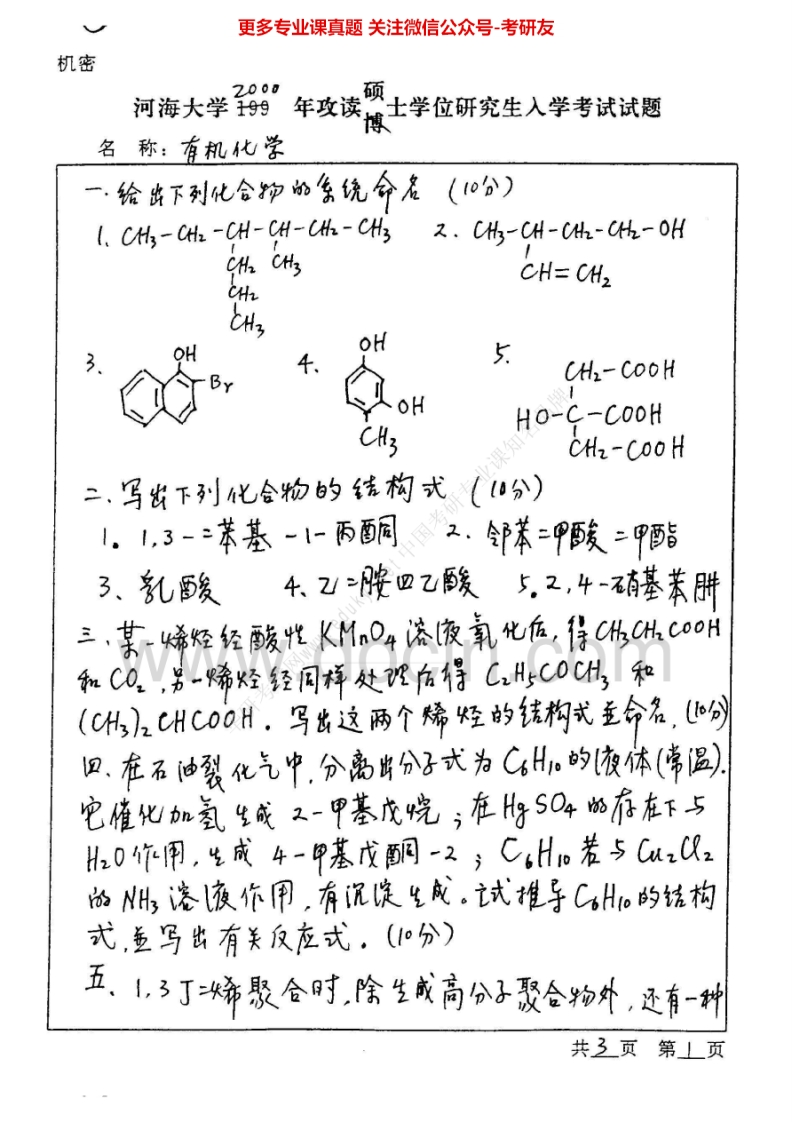 更多专业课真题 关注微信公众号-考研友
机密
河海大学 2000 199 年攻读 硕 博 士学位研究生入学考试试题
名 称：有机化学
一.给出下列化合物的系统命名 (10分)
1. CH3-CH2-CH-CH-CH2-CH3 2. CH3-CH-CH2-CH2-OH
CH2 CH3 CH=CH2
CH2
CH3
3. OH Br 4. OH OH CH3 5. CH2-COOH
HO-C-COOH
CH2-COOH
二、写出下列化合物的结构式 (10分)
1. 1,3-二苯基-1-丙酮 2. 邻苯二甲酸二甲酯
3、乳酸 4、乙二胺四乙酸 5. 2,4-硝基苯肼
三、某一烯烃经酸性KMnO4溶液氧化后,得CH3CH2COOH
和CO2,另一烯烃经同样处理后得 C2H5COCH3 和
(CH3)2CHCOOH. 写出这两个烯烃的结构式并命名.(10分)
四、在石油裂化气中,分离出分子式为C6H10的液体(常温).
它催化加氢生成2-甲基戊烷；在HgSO4的存在下与
H2O作用,生成4-甲基戊酮-2；C6H10若与Cu2Cl2
的NH3溶液作用,有沉淀生成。试推导C6H10的结构
式,并写出有关反应式.(10分)
五、1,3丁二烯聚合时,除生成高分子聚合物外,还有一种
共3页 第1页
www.docin.com